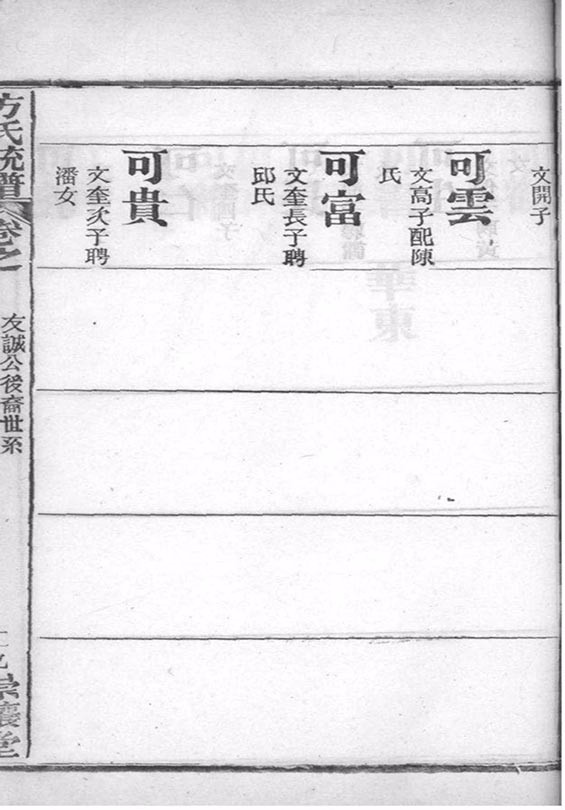 文開子
可雲
文高子配陳
氏
可富
文奎長子聘
邱氏
可貴
文奎次子聘
潘女
方氏統譜
卷之
友誠公後裔世系